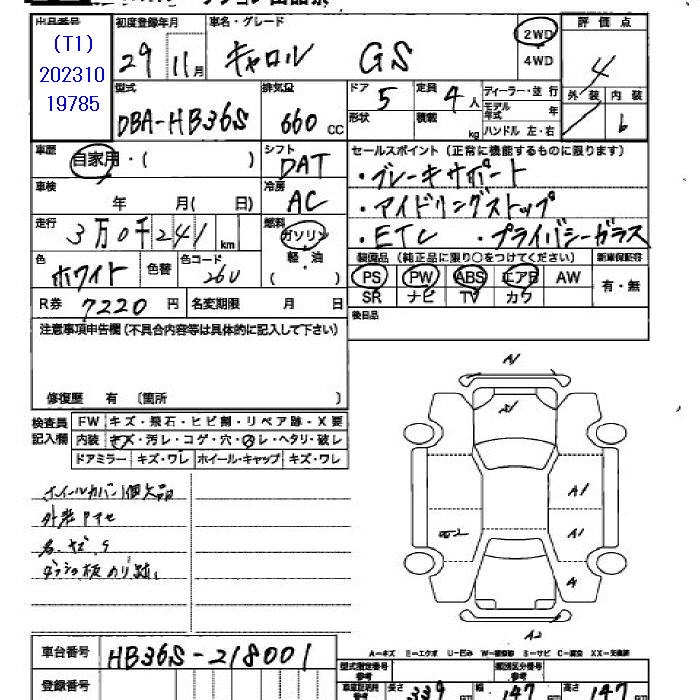 出品番号 初度登録年月 車名・グレード 評価点
(T1)
202310
19785
29年11月 キャロル GS 2WD 4
4WD
外装 内装
型式 排気量 ドア 定員 ディーラー・並行
DBA-HB36S 660cc 5 4人 モデル年式 年
形状 積載 kg ハンドル 左・右
6
車歴 シフト セールスポイント(正常に機能するものに限ります)
自家用・( ) DAT ・ブレーキサポート
車検 冷房 ・アイドリングストップ
年 月( 日) AC ・ETC ・プライバシーガラス
走行 燃料
3万0千241km ガソリン
軽・油
( )
装備品(純正品に限り○をつけてください) 新車保証書
色 色替 色コード
ホワイト 26U
PS PW ABS エアB AW 有・無
SR ナビ TV カワ
R券 7220円 名変期限 月 日
後日品
注意事項申告欄(不具合内容等は具体的に記入して下さい)
修復歴 有 〔箇所 〕
検査員記入欄
FW キズ・飛石・ヒビ割・リペア跡・X要
内装 キズ・汚レ・コゲ・穴・スレ・ヘタリ・破レ
ドアミラー キズ・ワレ ホイール・キャップ キズ・ワレ
ホイールカバー1個欠品
A1
A1
A1
A1
A
A2
A-キズ E-エクボ U-凹み W-補修跡 S-サビ C-腐食 XX-交換済
車台番号 HB36S-218001
登録番号
型式指定番号 参考
類別区分番号 参考
長さ 339 幅 147 高さ 147